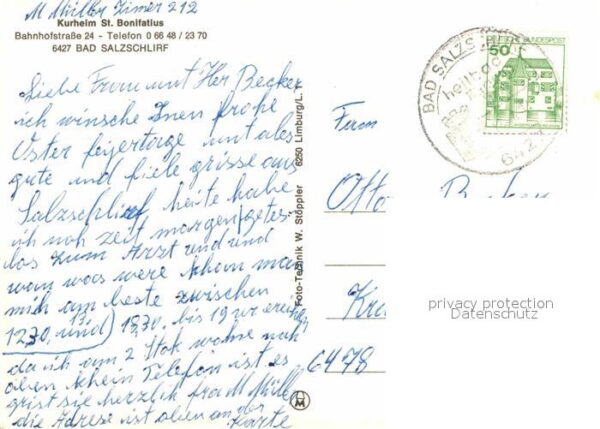 M Müller Zimer 212
Kurheim St. Bonifatius
Bahnhofstraße 24 - Telefon 0 66 48 / 23 70
6427 BAD SALZSCHLIRF
Liebe Frau unt Her Becker
ich wünsche Inen frohe
Oster feiertage unt ales
gute und fiele grisse aus
Salzschlirf heite habe
ich noh zeit morgen
los zum Arzt und und
wan was were khan man
mich am beste zwischen
12,30 13 und 18,30 bis 19 ur
da ich am 2 Stok wohne noh
oben khein Telefon ist es
grist sie herzlih frau M Müller
die Adrese ist oben an der
Karte
Foto-Technik W. Stöppler 6250 Limburg/L. 1
DEUTSCHE BUNDESPOST
50
BAD SALZSCHLIRF
heilbad
642
Fam
Otto Becker
6478
privacy protection
Datenschutz